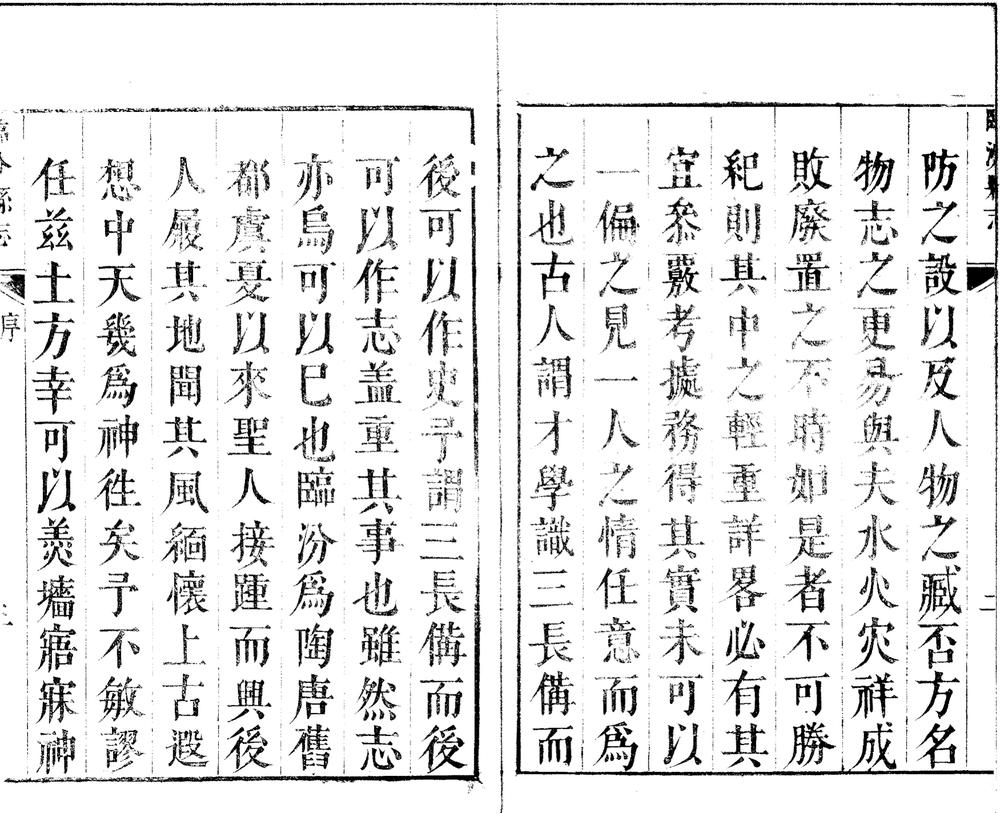 防之設以及人物之臧否方名
物志之更易與夫水火灾祥成
敗廢置之不時如是者不可勝
紀則其中之輕重詳畧必有其
宜叅覈考㨿務得其實未可以
一偏之見一人之情任意而爲
之也古人謂才學識三長備而
後可以作史予謂三長備而後
可以作志盖重其事也雖然志
亦烏可以已也臨汾爲陶唐舊
都虞夏以來聖人接踵而興後
人履其地聞其風緬懷上古遐
想中天幾爲神徃矣予不敏謬
任兹土方幸可以羙墻寤寐神
臨汾縣志
序